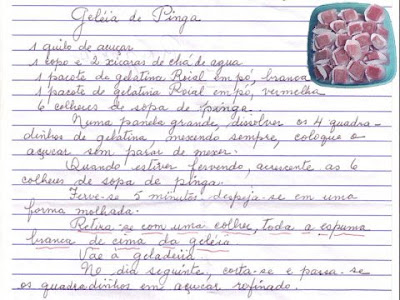 Geléia de Pinga
1 quilo de açucar
1 copo e 2 xícaras de chá de agua
1 pacote de gelatina Roial em pó, branca
1 pacote de gelatina Roial em pó, vermelha
6 colheres de sopa de pinga.
Numa panela grande, dissolver os 4 quadra-
dinhos de gelatina, mexendo sempre, coloque o
açucar sem parar de mexer.
Quando estiver fervendo, acrescente as 6
colheres de sopa de pinga.
Ferve-se 5 minutos despeja-se em uma
forma molhada.
Retira-se com uma colher, toda a espuma
branca de cima da geléia
Vai à geladeira
No dia seguinte, corta-se e passa-se
os quadradinhos em açucar refinado.